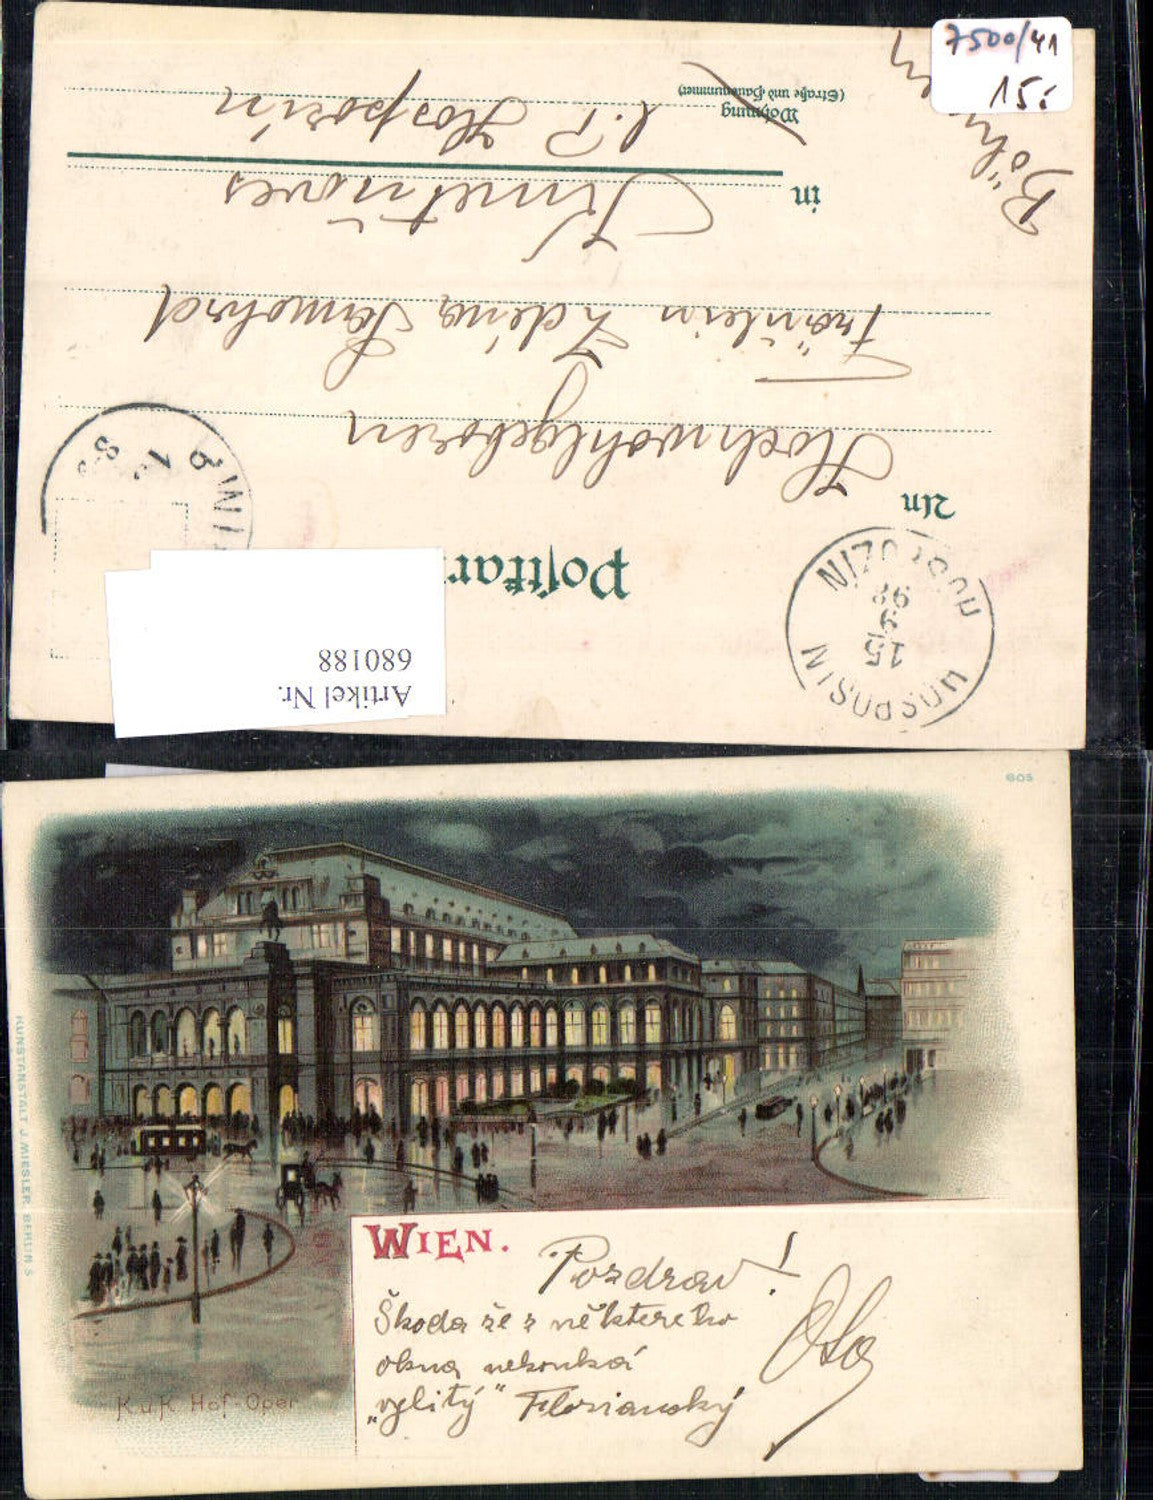 7500/41
15,-
Postkar
An
Hochwohlgeboren
Fräulein Zdena Samohrd
in
l. P. Hospozin
Wohnung
(Straße und Hausnummer)
Böhmen
HOSPOSIN
15
9
98
WIEN
Artikel Nr.
680188
605
WIEN.
Pozdrav!
Škoda že z některého
okna nekouká
„vylitý“ Florianský
Ota
K.u.K. Hof-Oper
KUNSTANSTALT J. MIESLER, BERLIN S.